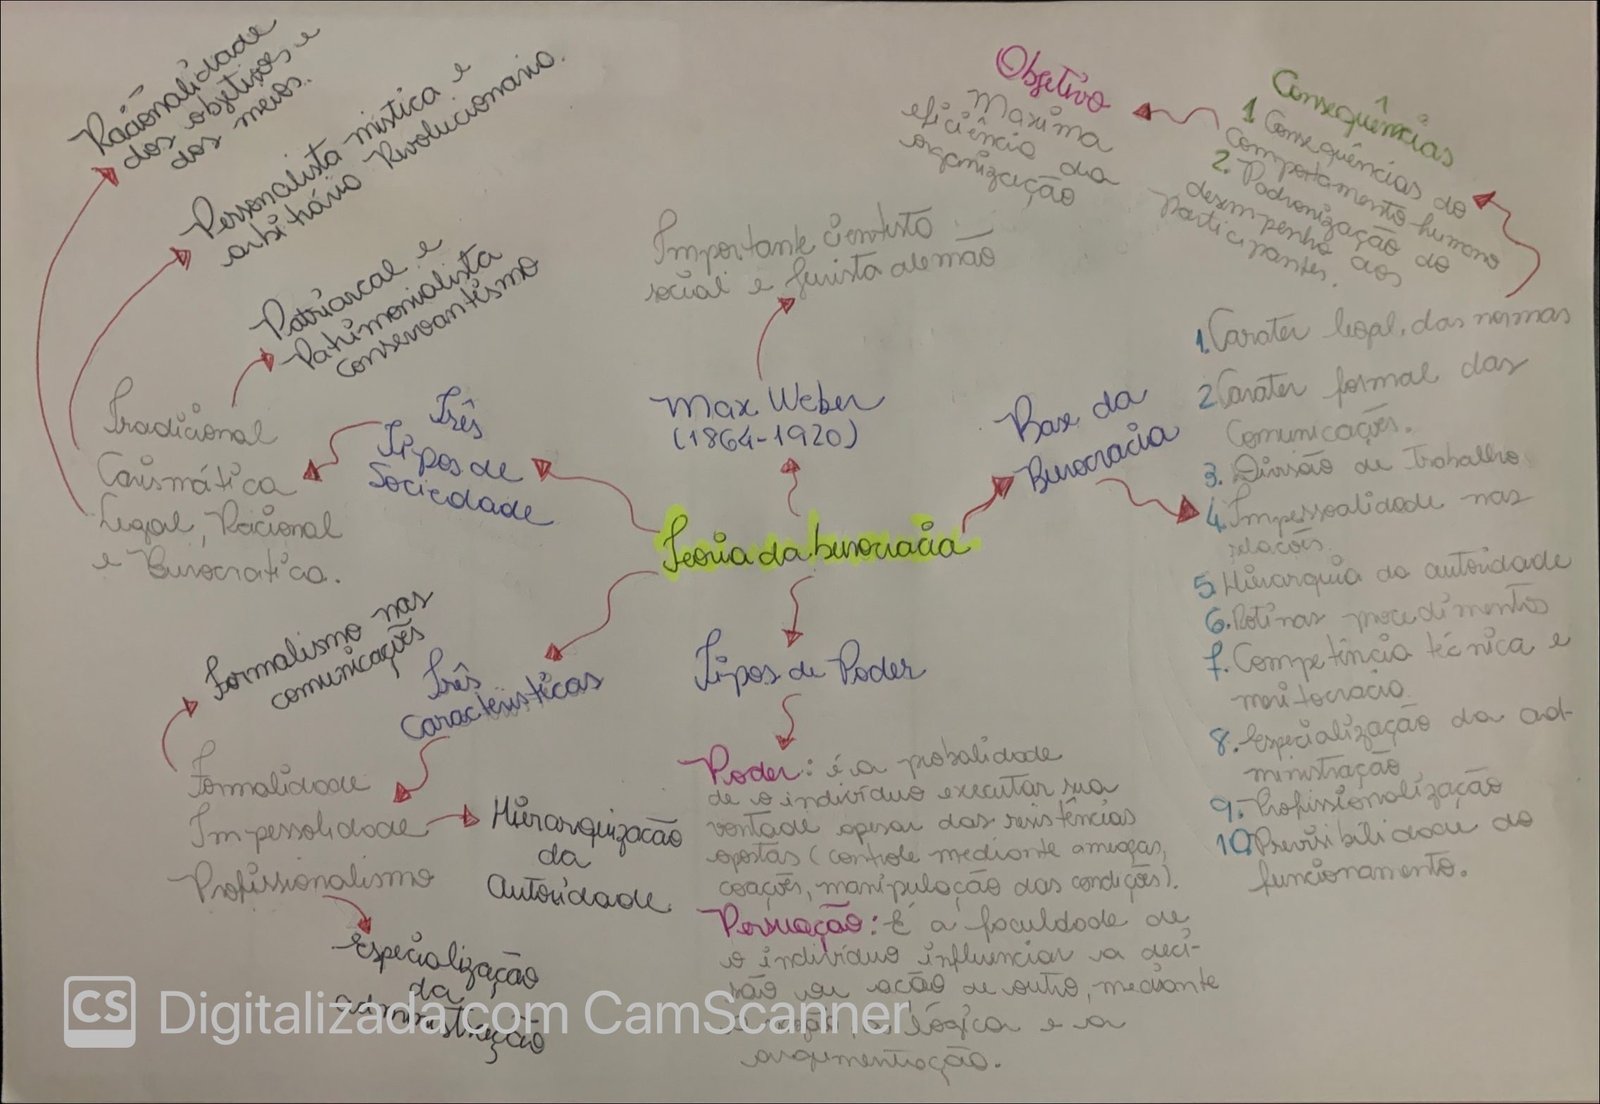 Racionalidade
dos objetivos e
dos meios.
Personalista mística e
arbitrário Revolucionario.
Patriarcal e
Patrimonialista
conservantismo
Tradicional
Carismática
Legal, Racional
e Burocratica.
Três
Tipos de
Sociedade
Importante cientista
social e jurista alemão
Max Weber
(1864-1920)
Objetivo
Maxima
eficiência da
organização
Consequências
1. Consequências do
comportamento humano
2. Padronização do
desempenho dos
participantes.
Base da
Burocracia
1. Carater legal, das normas
2. Carater formal das
Comunicações.
3. Divisão de Trabalho
4. Impessoalidade nas
relações.
5. Hierarquia da autoridade
6. Rotinas procedimentos
7. Competência técnica e
meritocracia.
8. Especialização da ad-
ministração
9. Profissionalização
10. Previsibilidade do
funcionamento.
Teoria da burocracia
Formalismo nas
comunicações
Três
Caracteristicas
Formalidade
Impessolidade
Profissionalismo
Hierarquização
da
Autoridade
Especialização
da
administração
Tipos de Poder
Poder: é a probalidade
de o indivíduo executar sua
vontade apesar das resistências
opostas (controle mediante ameaças,
coações, manipulação das condições).
Persuação: É a faculdade de
o indivíduo influenciar a deci-
são ou ação de outro, mediante
a lógica e a
argumentação.
CS Digitalizada com CamScanner